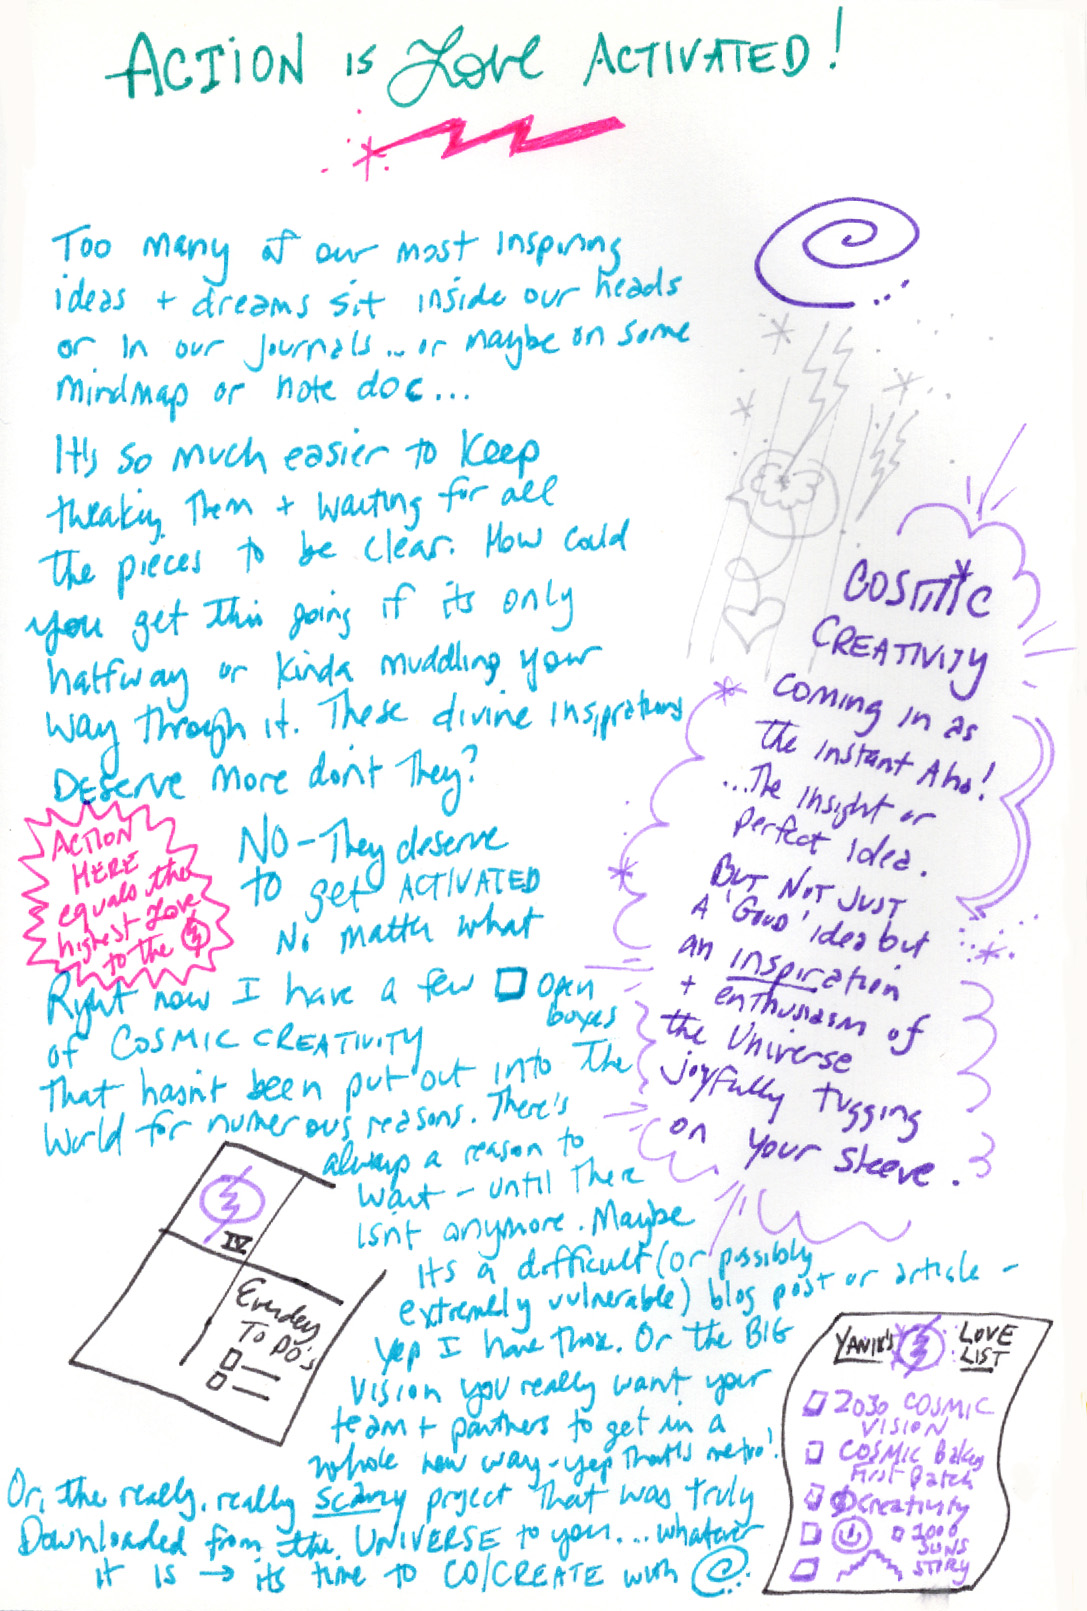 ACTION IS Love ACTIVATED!
Too many of our most inspiring
ideas + dreams sit inside our heads
or in our journals... or maybe on some
mindmap or note doc...
It's so much easier to keep
tweaking them + waiting for all
the pieces to be clear. How could
you get this going if its only
halfway or kinda muddling your
way through it. These divine inspirations
DESERVE more don't they?
NO - They deserve
to get ACTIVATED
No matter what
ACTION
HERE
equals the
highest Love
to the
Right now I have a few open
boxes
of COSMIC CREATIVITY
that hasn't been put out into the
world for numerous reasons. There's
always a reason to
wait - until there
isn't anymore. Maybe
its a difficult (or possibly
extremely vulnerable) blog post or article -
yep I have those. Or the BIG
vision you really want your
team + partners to get in a
whole new way - yep that's me too!
Or, the really, really scary project that was truly
Downloaded from the UNIVERSE to you... whatever
it is → its time to CO/CREATE with
COSMIC
CREATIVITY
coming in as
the instant Aha!
...The insight or
perfect idea.
BUT NOT JUST
A 'GOOD' idea but
an inspiration
+ enthusiasm of
the Universe
joyfully tugging
on your sleeve.
IV
Everday
To DO's
YANIK'S LOVE
LIST
2030 COSMIC
VISION
COSMIC Bakery
First Batch
Creativity
1000
SUNS
STORY